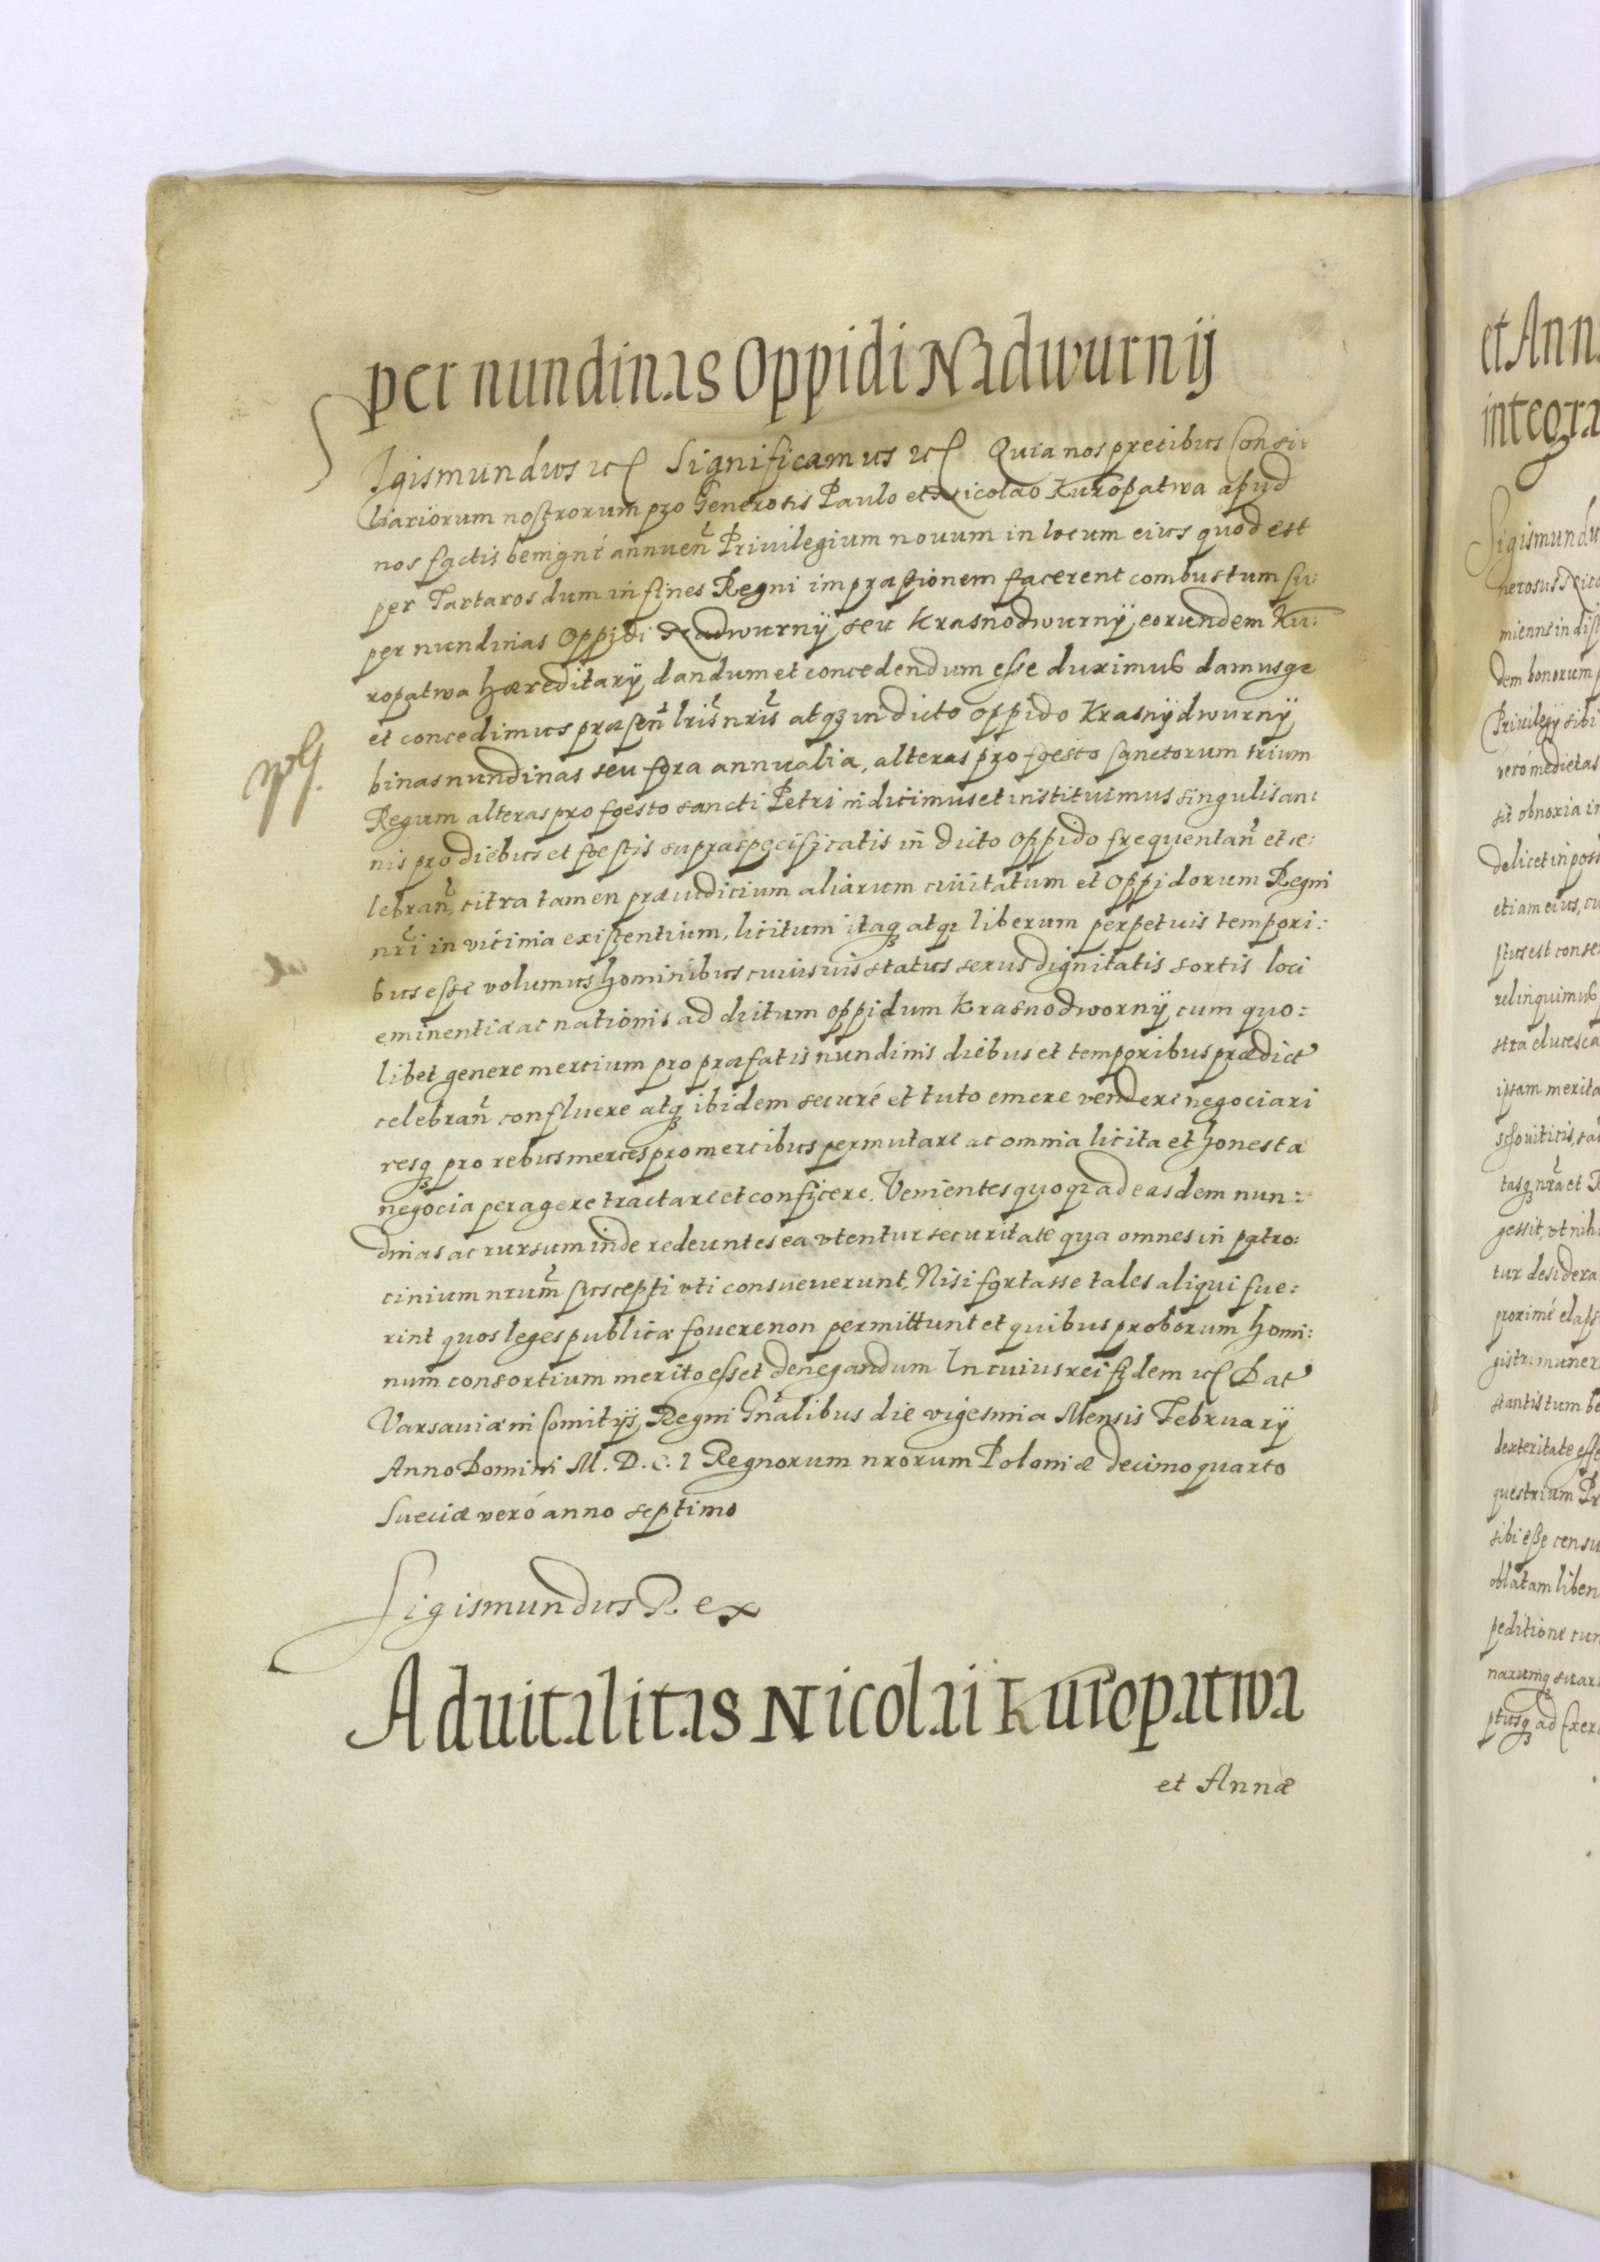 per nundinas Oppidi Nadwurnÿ
Sigismundus etc Significamus etc Quia nos precibus Consi:
liariorum nostrorum pro Generosis Paulo et Nicolao Kuropatwa apud
nos factis benigné annuen̄ Priuilegium nouum in locum eius quod est
per Tartaros dum in fines Regni impraessionem facerent combustum su:
per nundinas Oppidi Nadwurnÿ, seu Krasnodwurnÿ, eorundem Ku:
ropatwa haereditarÿ, dandum et concedendum esse duximus damusqe
et concedimus praesen̄ lris nris atqꝫ in dicto oppido Krasnÿdwurnÿ
binas nundinas seu fora annualia, alteras pro foesto sanctorum trium
Regum alteras pro foesto sancti Petri indicimus et instituimus singulis an:
nis pro diebus et foestis supraspecificatis in dicto oppido frequentan̄ et ce:
lebran̄, citra tamen praeiudicium aliarum ciuitatum et oppidorum Regni
nri in vicinia existentium, licitum itaqꝫ atqꝫ liberum perpetuis tempori:
bus esse volumus hominibus cuiusuis status sexus dignitatis sortis loci
eminentiae ac nationis ad dictum oppidum Krasnodwornÿ, cum quo:
libet genere mercium pro praefatis nundinis diebus et temporibus praedict
celebran̄ confluere atqꝫ ibidem securé et tuto emere vendere negociari
resqꝫ pro rebus merces pro mercibus permutare ac omnia licita et honesta
negocia peragere tractare et conficere. Venientes quoqꝫ ad easdem nun:
dinas ac rursum inde redeuntes ea vtentur securitate qua omnes in patro:
cinium nrum suscepti vti consueuerunt, Nisi fortasse tales aliqui fue:
rint quos leges publicae fouere non permittunt et quibus proborum homi:
num consortium merito esset denegandum In cuius rei fidem etc Dat
Varsauiae in Comitÿs Regni Gnalibus die vigesima Mensis Februarÿ
Anno Domini M. D. C. I Regnorum nrorum Poloniae decimo quarto
Sueciae veró anno septimo
Sigismundus Rex
Aduitalitas Nicolai Kuropatwa
et Annae
et Ann
integra
Sigismundu
nerosus Nico
dem bonorum
Priuilegÿ sibi
veró medietas
sit obnoxia in
etiam eius, cu
relinquimus
ipsam merita
tur desidera
proximé elaps
stantis tum be
dexteritate esse
questriam Pr
sibi esse censu
oblatam liben
peditione cum
ptusqꝫ ad Exer